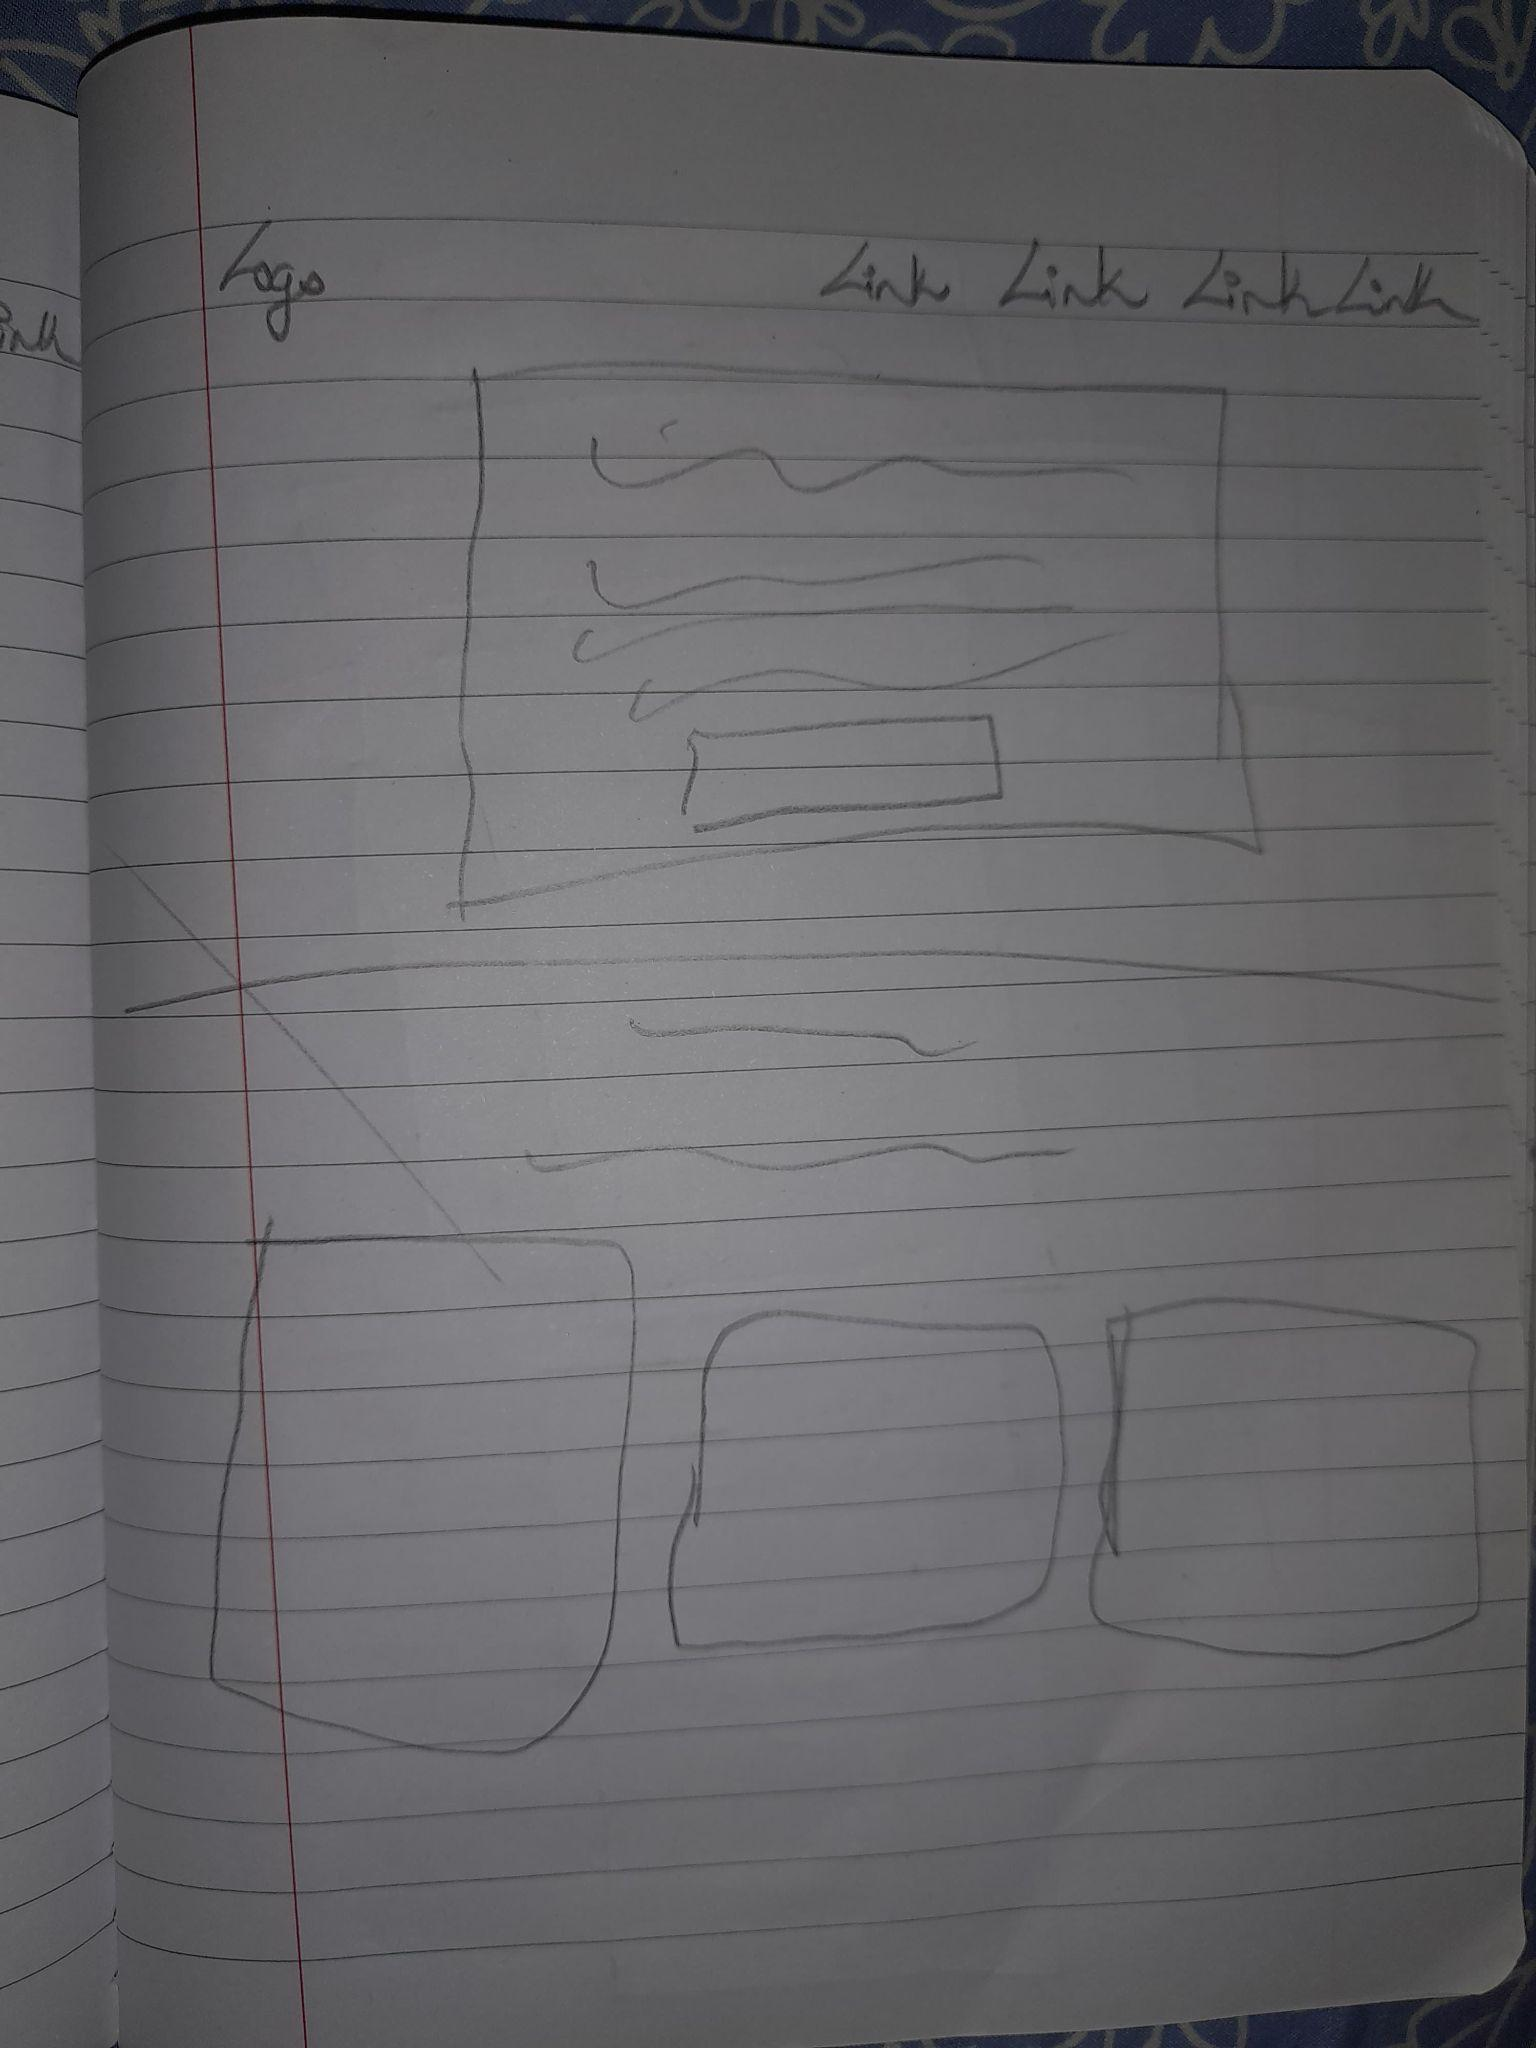 Logo Link Link Link Link